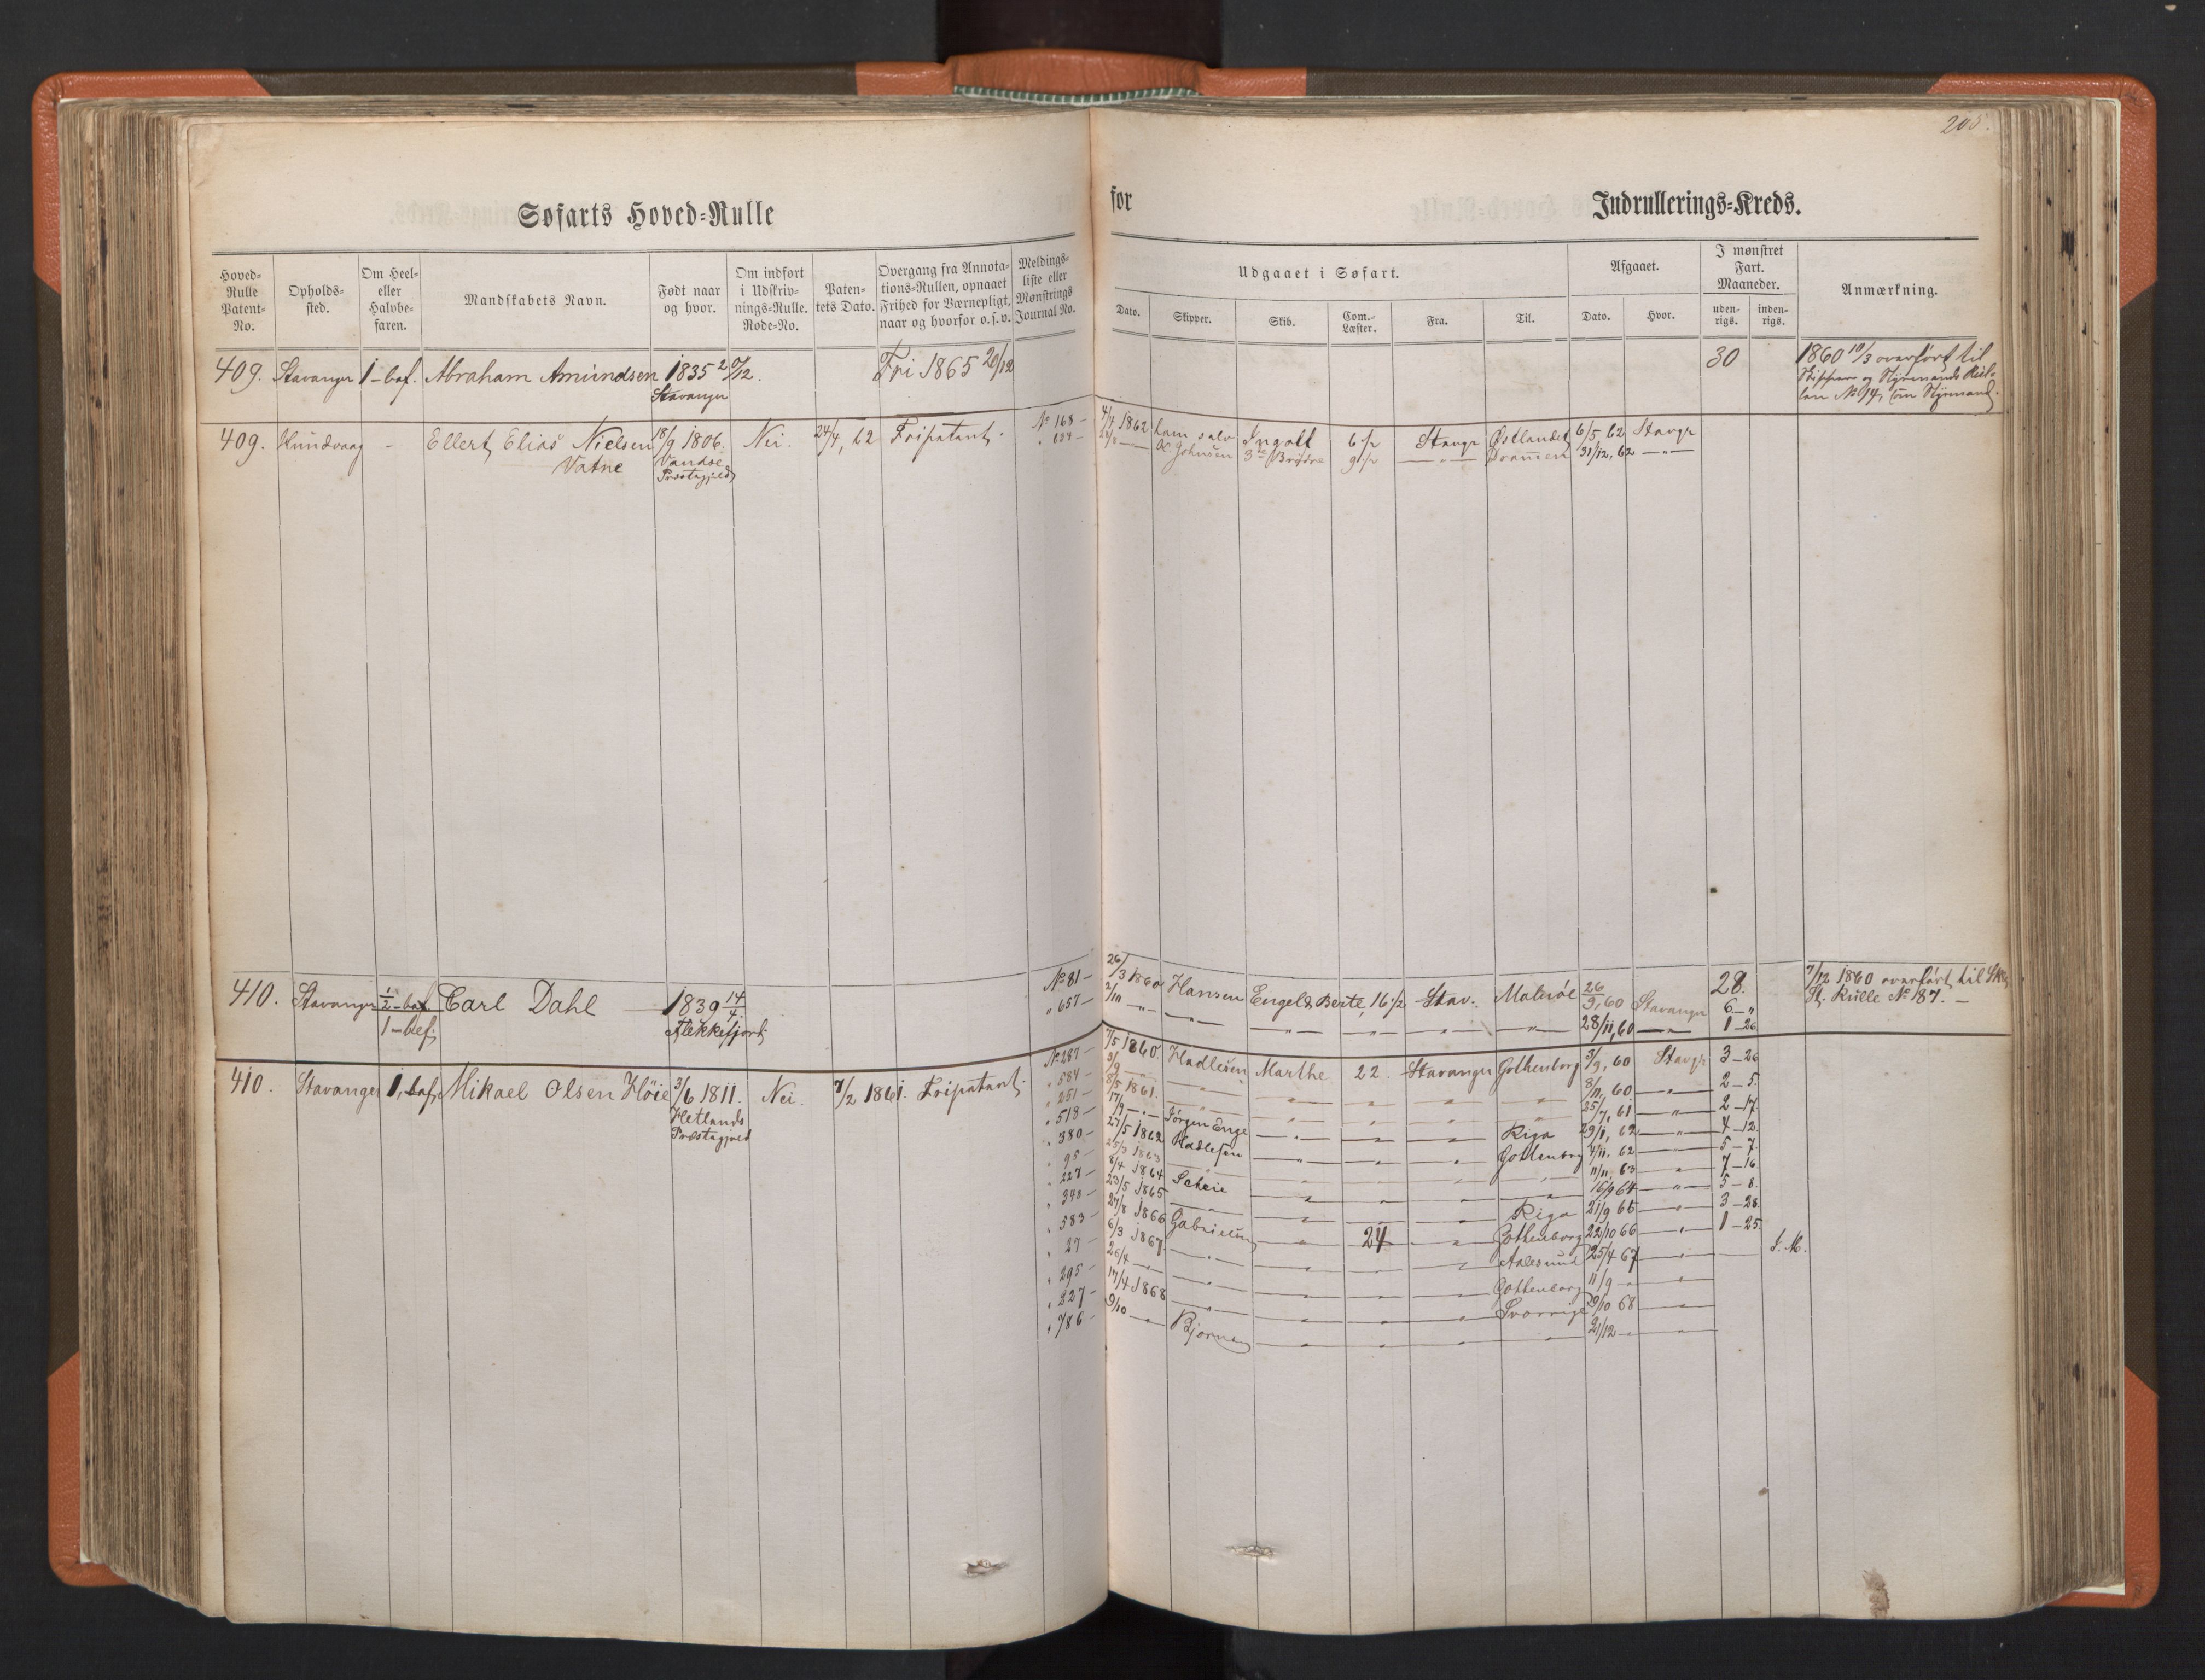 205.
Søfarts Hoved=Rulle
for
Indrullerings=Kreds.
Hoved=Rulle Patent=No.
Opholds=sted.
Om Heel= eller Halvbe=faren.
Mandskabets Navn.
Født naar og hvor.
Om indført i Udskriv=nings=Rulle. Rode=No.
Paten=tets Dato.
Overgang fra Annota=tions=Rullen, opnaaet Frihed for Værnepligt, naar og hvorfor o.s.v.
Meldings=liste eller Mønstrings Journal No.
Udgaaet i Søfart.
Dato.
Skipper.
Skib.
Com.=Læster.
Fra.
Til.
Afgaaet.
Dato.
Hvor.
I mønstret Fart. Maaneder.
uden=rigs.
inden=rigs.
Anmærkning.
409. Stavanger 1-bef. Abraham Amundsen 1835 20/12. Fri 1865 20/12 30 1860 10/3 overført til
Stavanger Skipper og Styrmands Rul=
len No 94, som Styrmand.
409. Hundvaag - Ellert Elias Nielsen 18/9 1806. Nei. 24/4, 62 Fripatent. No 168 - 4/4 1862 ham selv Ingolf 6 1/2 Stavgr Østlandet 6/5, 62 Stavgr
Vatne Vandse Præstegjeld Johnsen 3de Brødre 9 1/2 -"- Dramen 31/12, 62 -"-
410. Stavanger 1/2-bef. Carl Dahl 1839 14/4. No 81 - 26/3 1860 Hansen Engel & Berte, 16 1/2 Stav. 26/9, 60 Stavanger 28. 7/12 1860 overført til Sk.
1-bef. Flekkefjord " 657 - 2/10 -"- 6 - "
St. Rulle No 187. -
28/11, 60 -"- 1 - 26
410. Stavanger 1, bef. Mikael Olsen Høie 3/6 1811. Nei. 7/2 1861. Fripatent. No 287 - 7/5 1860. Hadlesen Marthe 22. Stavanger Gothenborg 3/9, 60 Stavgr 3 - 26
Hetlands Præstegjeld " 584 - 3/9 -"- 8/11, 60 -"- 2 - 5.
" 251 - 8/5 1861. 25/7, 61 -"- 2 - 17.
" 518 - 17/9 -"- Jørgen Enge Riga 29/11, 62 -"- 4 - 12.
" 380 - 27/5 1862 Hadlesen Gothenborg 4/11, 62 -"- 5 - 7.
" 95 - 25/3 1863 11/11, 63 -"- 7 - 16.
" 227 - 8/4 1864 Scheie 16/9 64 -"- 5 - 8.
" 348 - 23/5 1865 Riga 21/9 65 -"- 3 - 28.
" 583 - 27/8 1866 Gabrielsen 24 Gothenborg 22/10 66 -"- 1 - 25.
" 27 - 6/3 1867. Aalesund 25/4 67 -"-
" 295 - 26/4 -"- Gothenborg 11/9 -"-
" 227 - 17/4 1868 Sverrige 9/10 68 -"-
" 786 - 9/10 -"- Bjørnsen 21/12 -"-